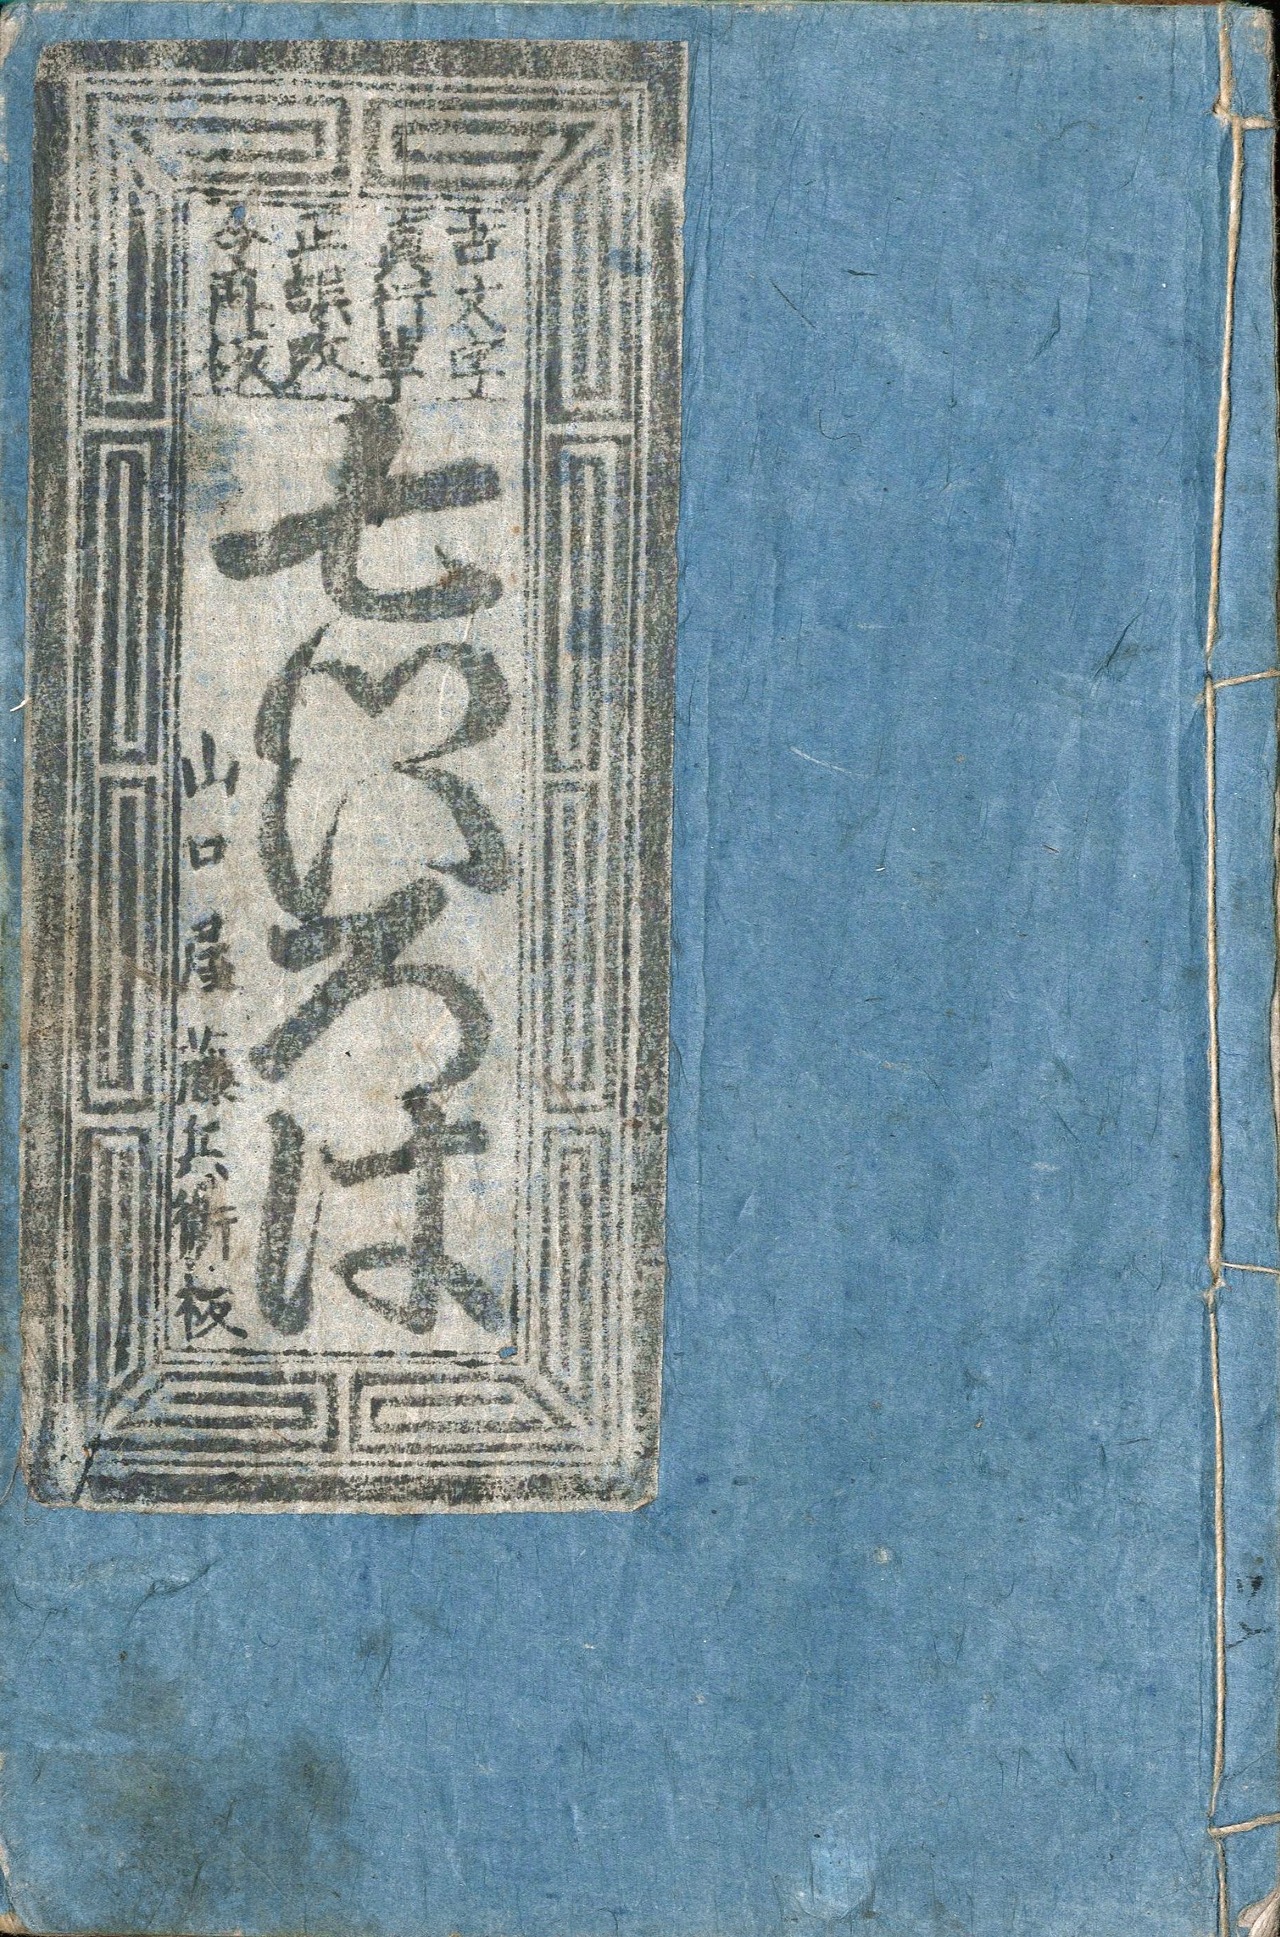 古文字
真行草
正誤改
今再板
七いろは
山口屋藤兵衛板